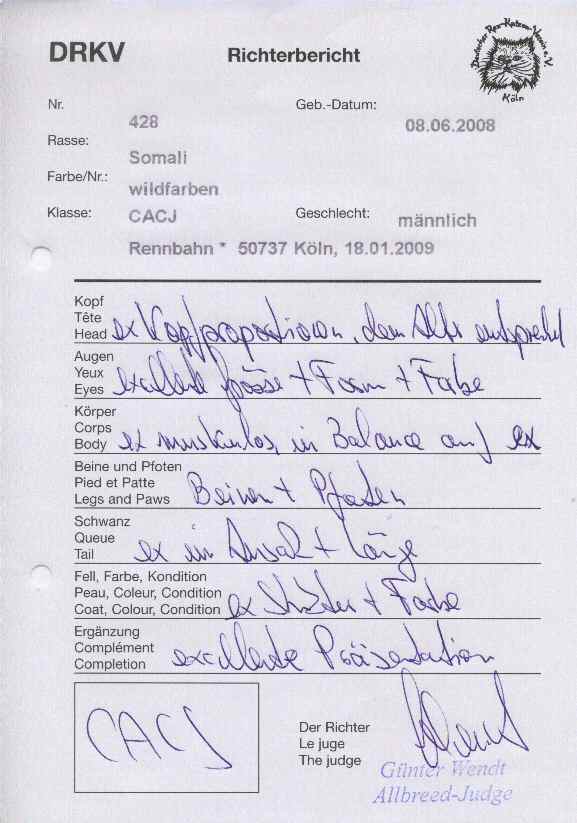 DRKV Richterbericht
Deutscher Rex-Katzen-Verein e.V. Köln
Nr. 428 Geb.-Datum: 08.06.2008
Rasse: Somali
Farbe/Nr.: wildfarben
Klasse: CACJ Geschlecht: männlich
Rennbahn * 50737 Köln, 18.01.2009
Kopf
Tête
Head ex Kopfproportionen, dem Alter entsprechend
Augen
Yeux
Eyes excellente Grösse + Form + Farbe
Körper
Corps
Body ex muskulös, in Balance auf ex
Beine und Pfoten
Pied et Patte
Legs and Paws Beinen + Pfoten
Schwanz
Queue
Tail ex in Ansatz + Länge
Fell, Farbe, Kondition
Peau, Coleur, Condition
Coat, Colour, Condition ex + Farbe
Ergänzung
Complément
Completion excellente Präsentation
CACJ
Der Richter
Le juge
The judge
Günter Wendt
Allbreed-Judge